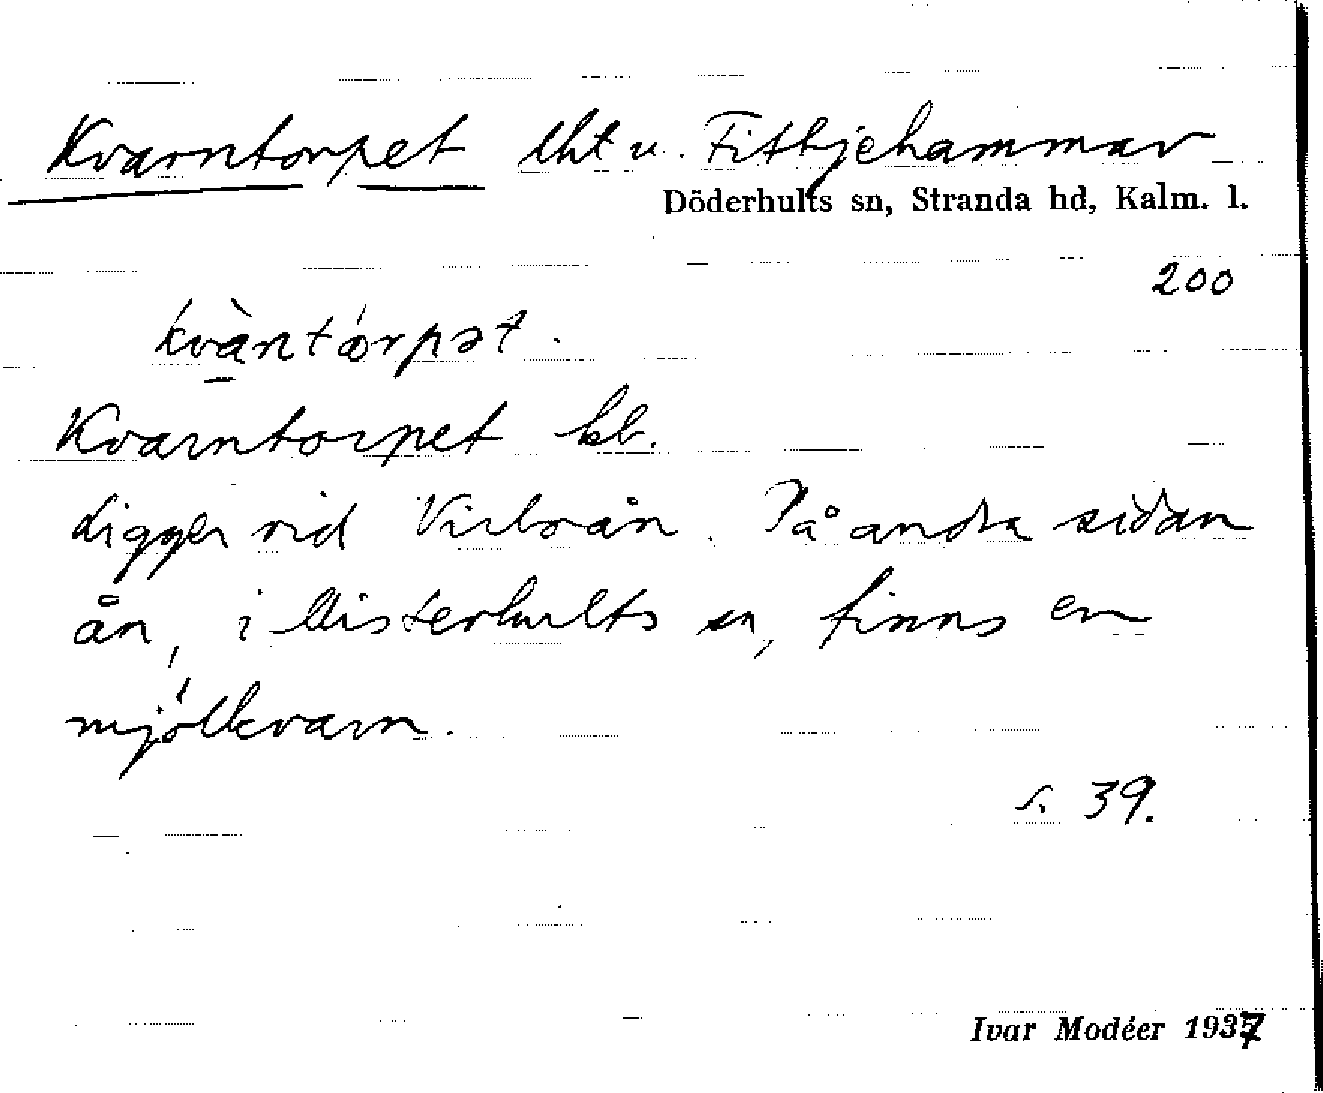 Kvarntorpet lht u. Fitbjehammar
Döderhults sn, Stranda hd, Kalm. l.
200
kvàntórpət.
Kvarntorpet kb.
Ligger vid Virboån. På andra sidan
ån, i Misterhults sn, finns en
mjölkvarn.
s. 39.
Ivar Modéer 1937